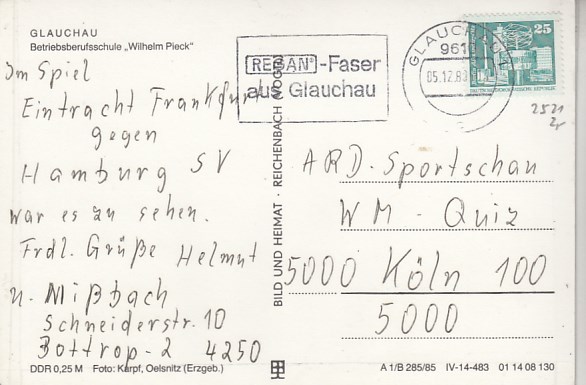 GLAUCHAU
Betriebsberufsschule „Wilhelm Pieck"
Im Spiel
Eintracht Frankfurt
gegen
Hamburg SV
war es zu sehen.
Frdl. Grüße Helmut
u. Mißbach
Schneiderstr. 10
Bottrop-2 4250
DDR 0,25 M Foto: Karpf, Oelsnitz (Erzgeb.)
BILD UND HEIMAT · REICHENBACH (VOGTL)
-Faser
aus Glauchau
GLAUCHAU
961
05.12.89
25
2521
ARD-Sportschau
WM - Quiz
5000 Köln 100
5000
A 1/B 285/85 IV-14-483 01 14 08 130